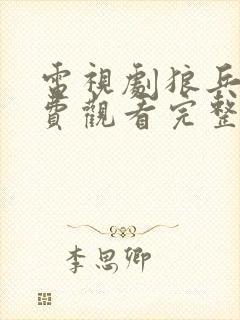 電視劇狼兵
費觀看完整
李思卿